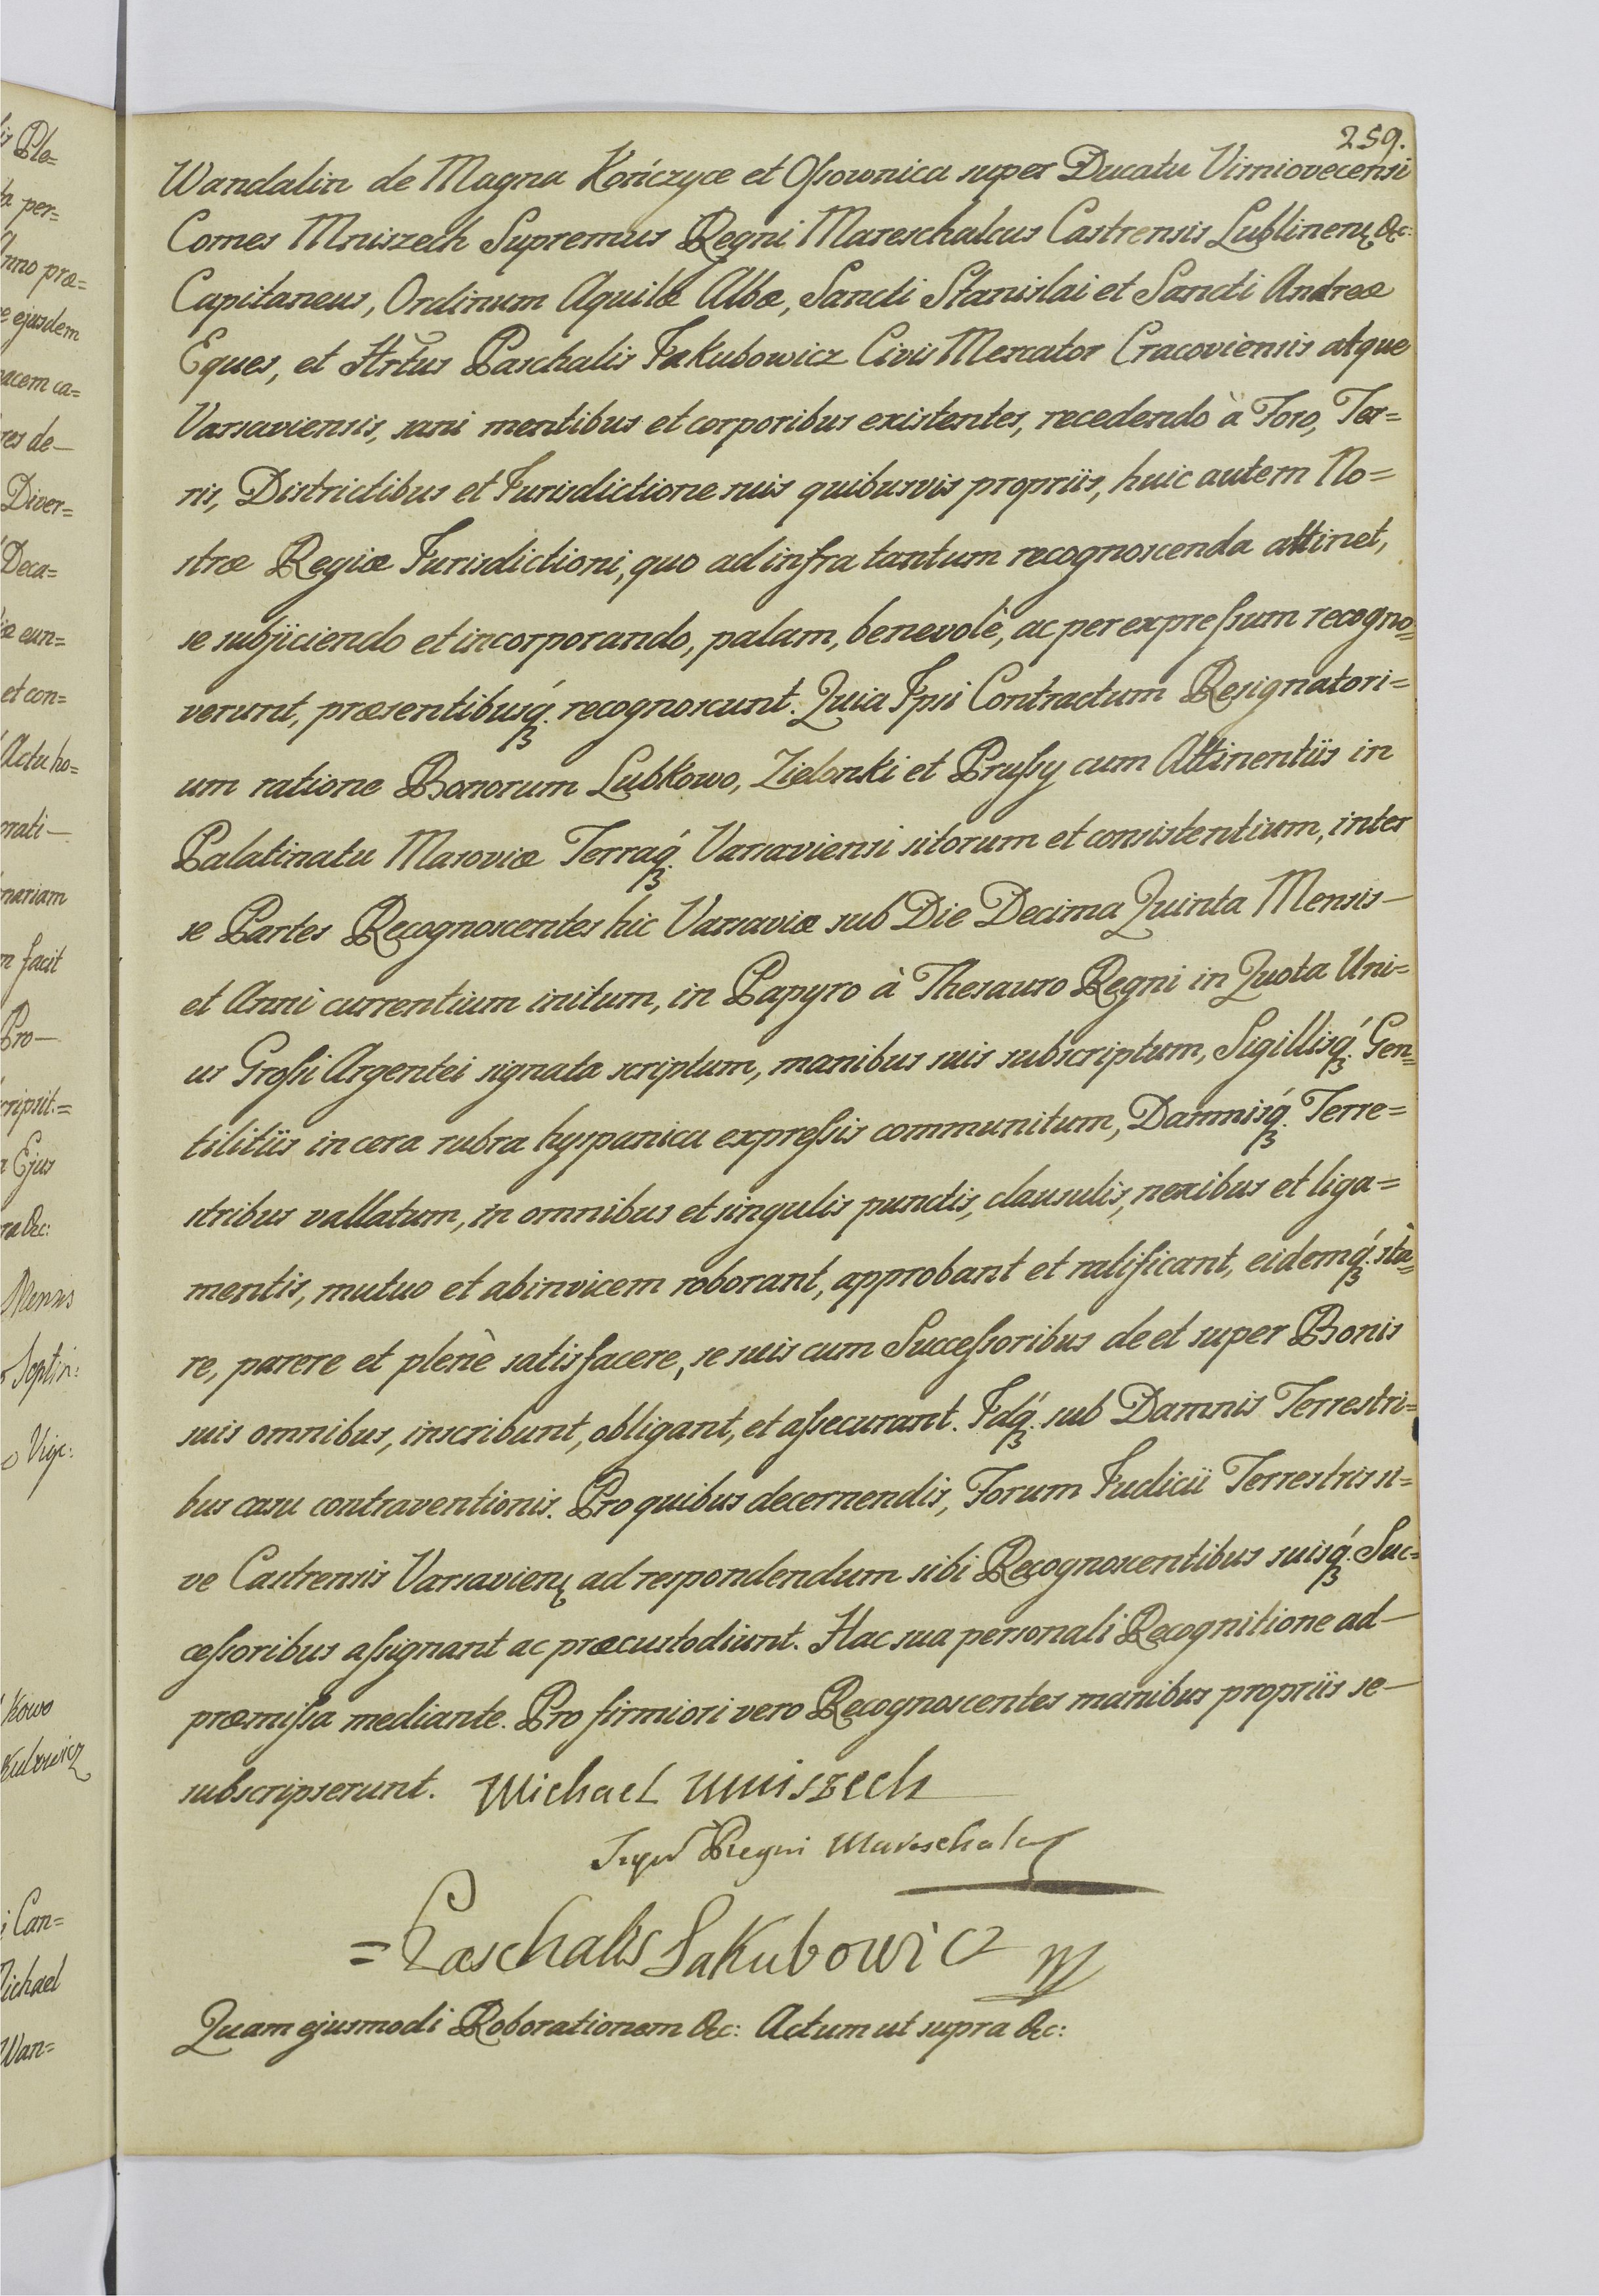 259.
Wandalin de Magna Kończyce et Ossownica super Ducatu Virniovecensi
Comes Mniszech Supremus Regni Mareschalcus Castrensis Lublinen̄ &c:
Capitaneus, Ordinum Aquilæ Albæ, Sancti Stanislai et Sancti Andreæ
Eques, et Hrtus Paschalis Jakubowicz Civis Mercator Cracoviensis atque
Varsaviensis, sani mentibus et corporibus existentes, recedendo à Foro, Ter=
ris, Districtibus et Jurisdictione suis quibusvis propriis, huic autem No=
stræ Regiæ Jurisdictioni, quo ad infra tantum recognoscenda attinet,
se subjiciendo et incorporando, palam, benevolè, ac per expressum recogno=
verunt, præsentibusq́ꝫ recognoscunt. Quia Ipsi Contractum Resignatori=
um ratione Bonorum Lubkowo, Zielonki et Prussy cum Attinentiis in
Palatinatu Masoviæ Terraq́ꝫ Varsaviensi sitorum et consistentium, inter
se Partes Recognoscentes hic Varsaviæ sub Die Decima Quinta Mensis—
et Anni currentium initum, in Papyro à Thesauro Regni in Quota Uni=
us Grossi Argentei signata scriptum, manibus suis subscriptum, Sigillisq́ꝫ Gen=
tilitiis in cera rubra hyspanica expressis communitum, Damnisq́ꝫ Terre=
stribus vallatum, in omnibus et singulis punctis, clausulis, nexibus et liga=
mentis, mutuo et abinvicem roborant, approbant et ratificant, eidemq́ꝫ stà=
re, parere et plenè satisfacere, se suis cum Successoribus de et super Bonis
suis omnibus, inscribunt, obligant, et assecurant. Idq́ꝫ sub Damnis Terrestri=
bus casu contraventionis. Pro quibus decernendis, Forum Judicii Terrestris si=
ve Castrensis Varsavien̄ ad respondendum sibi Recognoscentibus suisq́ꝫ Suc=
cessoribus assignant ac præcustodiunt. Hac sua personali Recognitione ad—
præmissa mediante. Pro firmiori vero Recognoscentes manibus propriis se—
subscripserunt. Michael Mniszech
Regni Mareschalcus
=Paschalis Jakubowicz
Quam ejusmodi Roborationem &c: Actum ut supra &c: